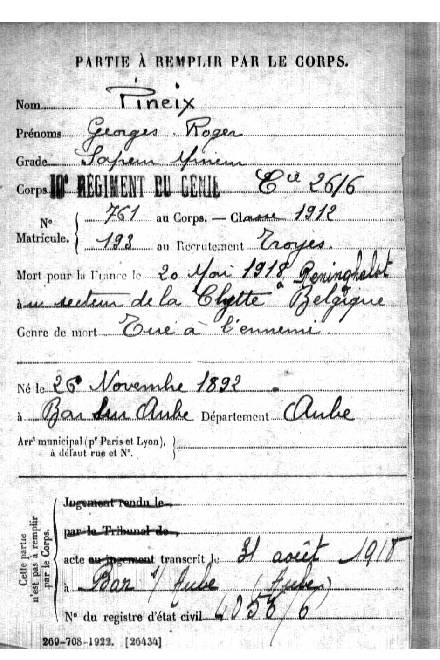 PARTIE À REMPLIR PAR LE CORPS.
Nom Pineix
Prénoms Georges Roger
Grade Sapeur Mineur
Corps 10e RÉGIMENT DU GÉNIE Cie 26/6
N° Matricule. { 761 au Corps. — Classe 1912
193 au Recrutement Troyes
Mort pour la France le 20 Mai 1918 à Reninghelst
au secteur de la Clytte Belgique
Genre de mort Tué à l'ennemi
Né le 26 Novembre 1892
à Bar sur Aube Département Aube
Arrt municipal (pr Paris et Lyon), à défaut rue et N°.
Cette partie n'est pas à remplir par le Corps.
Jugement rendu le
par le Tribunal de
acte au jugement transcrit le 31 août 1918
à Bar s/ Aube (Aube)
N° du registre d'état civil
269-708-1922. [26434]